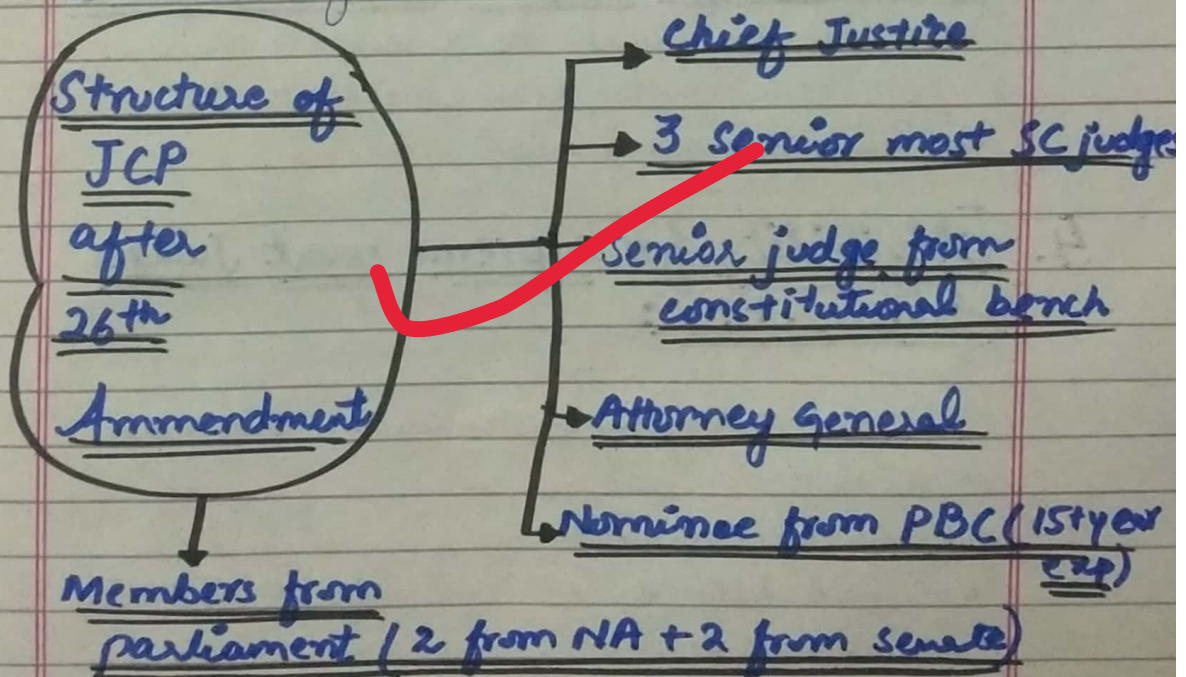 Structure of
JCP
after
26th
Ammendment
Chief Justice
3 senior most SC judges
senior judge from
constitutional bench
Attorney General
Nominee from PBC (15+ year
exp)
Members from
parliament (2 from NA + 2 from senate)